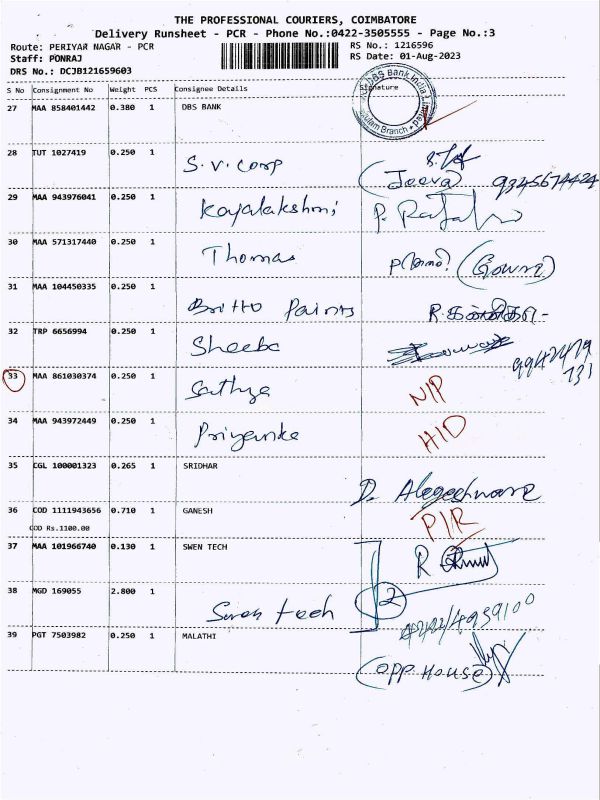 THE PROFESSIONAL COURIERS, COIMBATORE
Delivery Runsheet - PCR - Phone No.:0422-3505555 - Page No.:3
Route: PERIYAR NAGAR - PCR
RS No.: 1216596
Staff: PONRAJ
RS Date: 01-Aug-2023
DRS No.: DCJB121659603
S No Consignment No Weight PCS Consignee Details Signature
27 MAA 858401442 0.380 1 DBS BANK
DBS Bank India Limited
Branch
28 TUT 1027419 0.250 1 S.V. Corp
(Jeeva) 9345674424
29 MAA 943976041 0.250 1 Kayalakshmi
30 MAA 571317440 0.250 1 Thomas
31 MAA 104450335 0.250 1 Britto Paints
32 TRP 6656994 0.250 1 Sheeba
33 MAA 861030374 0.250 1 Sathya N/P
34 MAA 943972449 0.250 1 Priyanka H/D
35 CGL 100001323 0.265 1 SRIDHAR
36 COD 1111943656 0.710 1 GANESH P/R
COD Rs.1100.00
37 MAA 101966740 0.130 1 SWEN TECH
38 MGD 169055 2.800 1 Swen tech 2
39 PGT 7503982 0.250 1 MALATHI
(opp House)